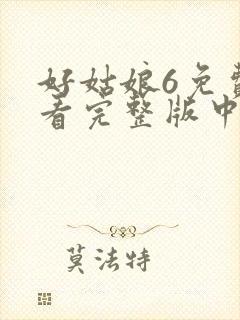 好姑娘6免费
看完整版中
莫法特